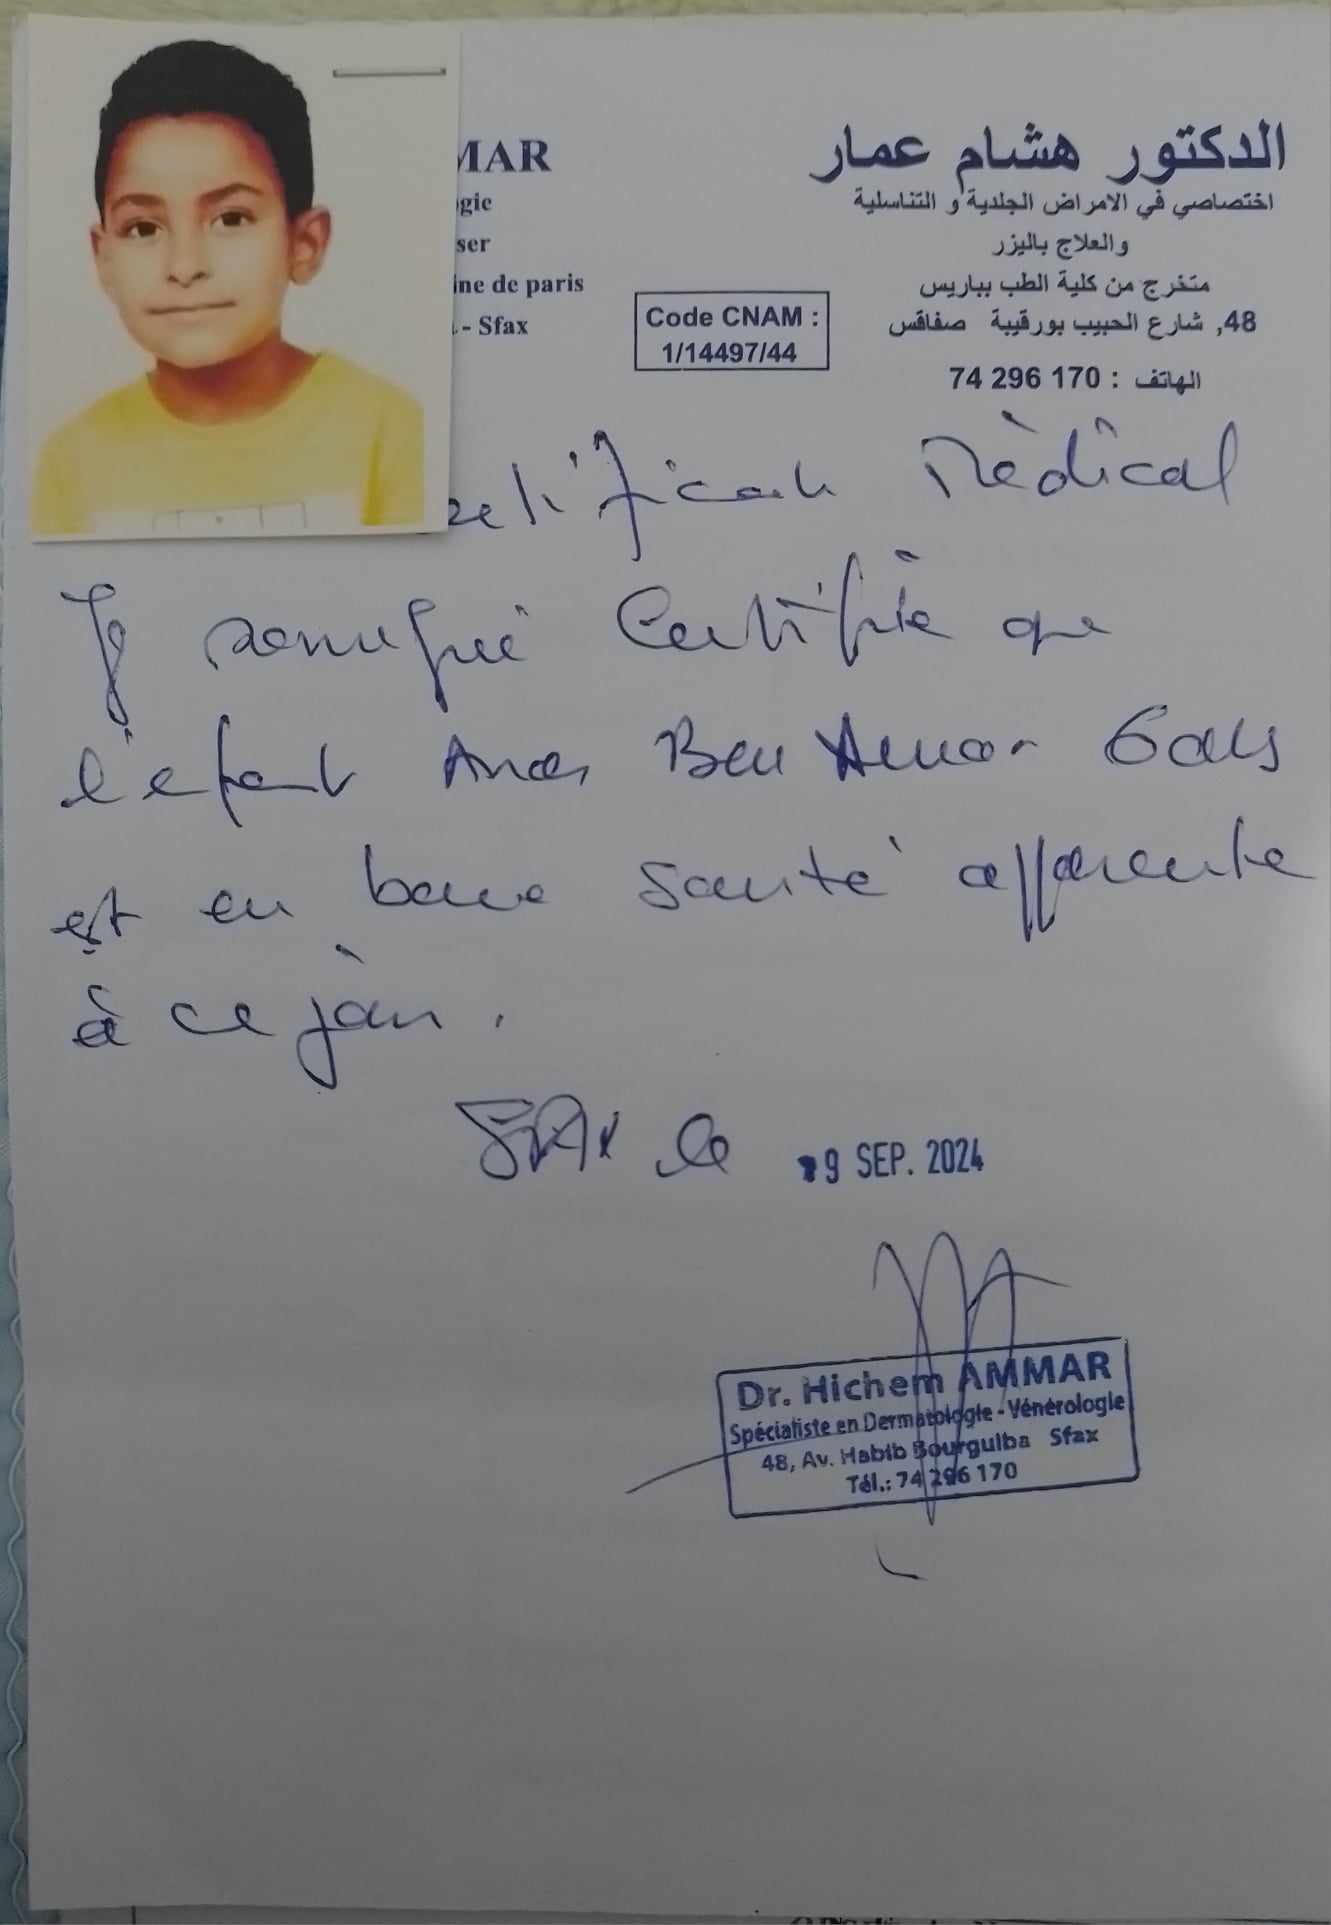 MAR
gie
ser
ine de paris
- Sfax
الدكتور هشام عمار
اختصاصي في الامراض الجلدية و التناسلية
والعلاج باليزر
متخرج من كلية الطب بباريس
48, شارع الحبيب بورقيبة صفاقس
الهاتف : 170 296 74
Code CNAM :
1/14497/44
Médical
Je certifie que
l'efant Anas Ben Amar 6 ans
est en bonne santé apparente
à ce jour.
SFAX le 9 SEP. 2024
Dr. Hichem AMMAR
Spécialiste en Dermatologie - Vénérologie
48, Av. Habib Bourguiba Sfax
Tél.: 74 296 170